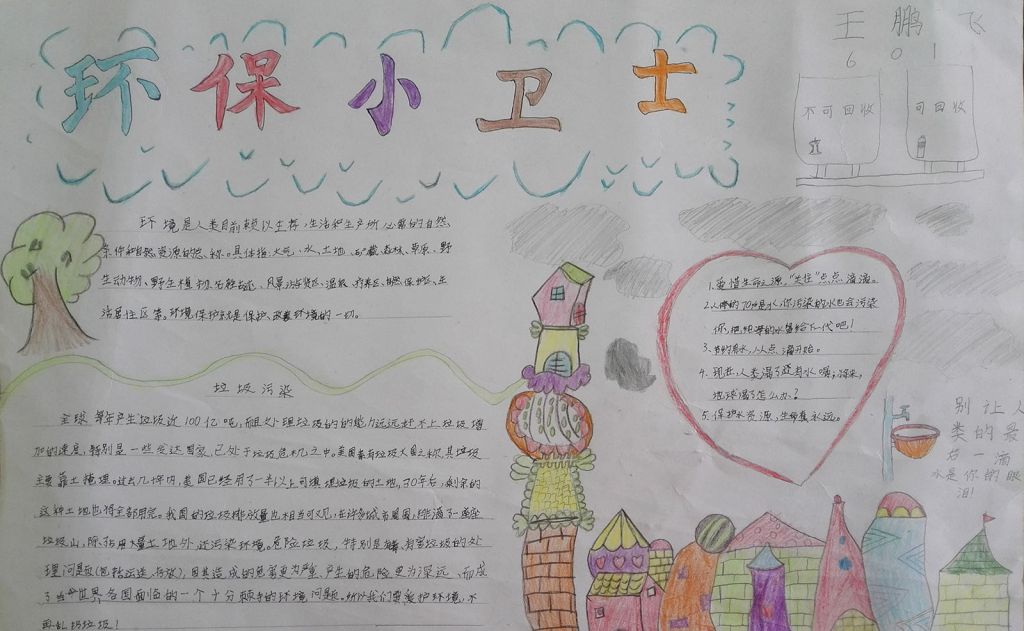 环保小卫士
王鹏飞
601
不可回收
可回收
环境是人类目前赖以生存,生活和生产所必需的自然
条件和自然资源的总称。具体指:大气、水、土地、矿藏、森林、草原、野
生动物、野生植物、名胜古迹、风景游览区、温泉、疗养区、自然保护区、生
活居住区等。环境保护就是保护、改善环境的一切。
垃圾污染
全球每年产生垃圾近100亿吨,而且处理垃圾的的能力远远赶不上垃圾增
加的速度,特别是一些发达国家,已处于垃圾危机之中。美国素有垃圾大国之称,其垃圾
主要靠土掩埋。过去几十年内,美国已经用了一半以上可填埋垃圾的土地,30年后,剩余的
这种土地也将全部用完。我国的垃圾排放量也相当可观,在许多城市周围,排满了一座座
垃圾山,除占用大量土地外,还污染环境。危险垃圾,特别是有毒、有害垃圾的处
理问题(包括运送、存放),因其造成的危害更为严重、产生的危险更为深远,而成
了当今世界各国面临的一个十分棘手的环境问题。所以我们要爱护环境,不
要乱扔垃圾!
1.爱惜生命之源,“关住”点点滴滴。
2.人体的70%是水,你污染的水也会污染
你,把纯净的水留给下一代吧!
3.节约用水,从点滴开始。
4.现在,人类渴了还有水喝;将来,
地球渴了怎么办?
5.保护水资源,生命真永远。
别让人
类的最
后一滴
水是你的眼
泪!